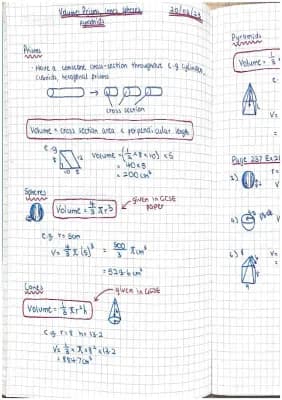 Volume: Prisms, cones, spheres,
pyramids
Prisms
· Have a constant cross-section throughout e.g cylinder,
cuboids, hexagonal prisms
cross section
Volume = cross section area x perpendicular length
e.g
10
8
5
Volume = (1/2 x 8 x 10) x 5
= 40 x 5
= 200 cm³
Spheres
Volume = 4/3 πr³
given in GCSE
paper
e.g. r = 5cm
V = 4/3 π(5)³ = 500/3 π cm³
= 523.6 cm³
Cones
given in GCSE
Volume = 1/3 πr²h
e.g. r=8 h=13.2
V = 1/3 x π x 8² x 13.2
= 884.7 cm³
Pyramids
Volume = 1/3
e.g
V=
=
Page 237 Ex